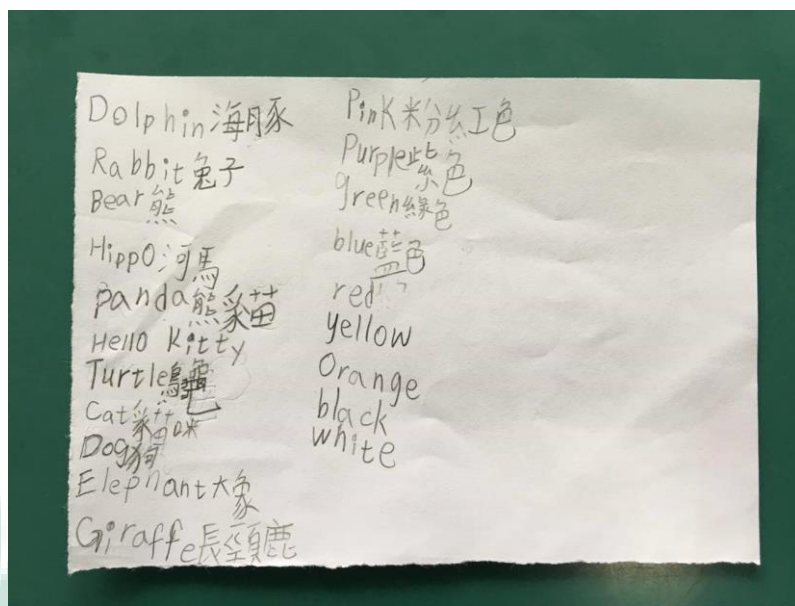 Dolphin海豚
Rabbit兔子
Bear熊
Hippo河馬
panda熊貓
Hello Kitty
Turtle烏龜
Cat貓咪
Dog狗
Elephant大象
Giraffe長頸鹿
Pink粉紅色
Purple紫色
green綠色
blue藍色
red
yellow
Orange
black
white